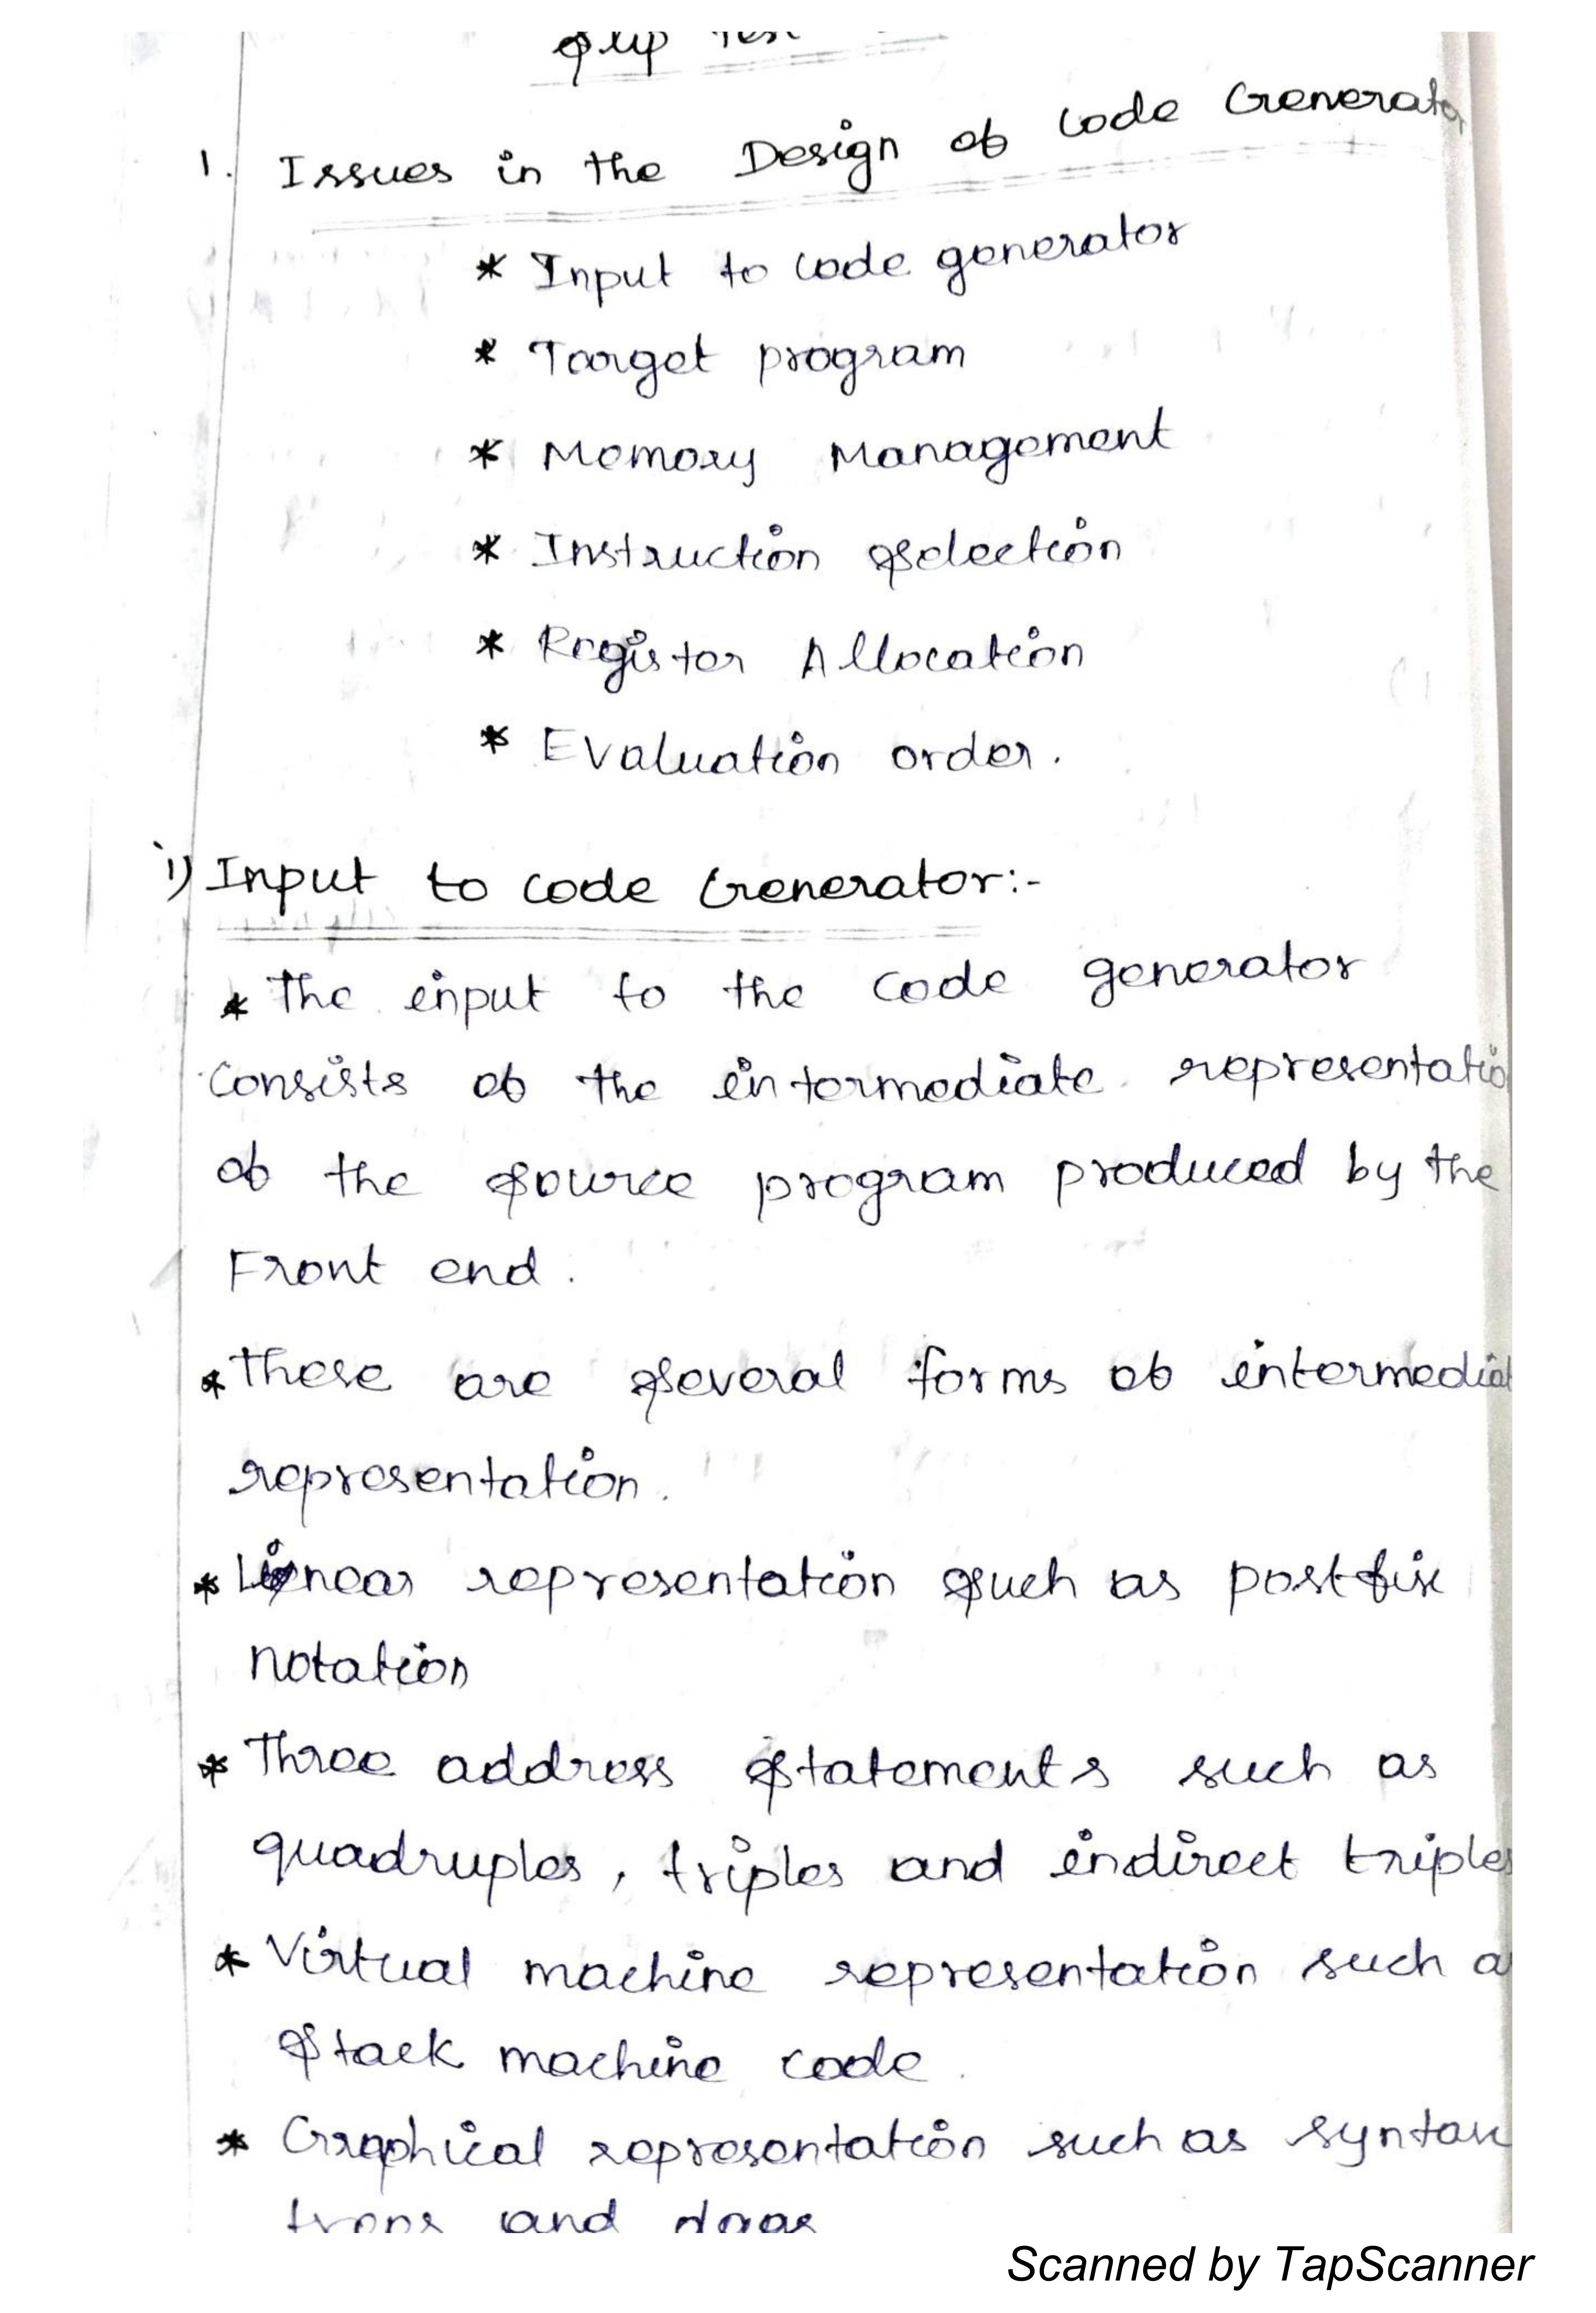 Slip Test
1. Issues in the Design of Code Generator
* Input to code generator
* Target program
* Memory Management
* Instruction Selection
* Register Allocation
* Evaluation order.
i) Input to code Generator:-
* The input to the code generator
consists of the intermediate representatio
of the source program produced by the
Front end.
* These are several forms of intermediat
representation.
* Linear representation such as postfix
notation
* Three address statements such as
quadruples, triples and indirect triples
* Virtual machine representation such a
stack machine code.
* Graphical representation such as syntax
trees and dags
Scanned by TapScanner